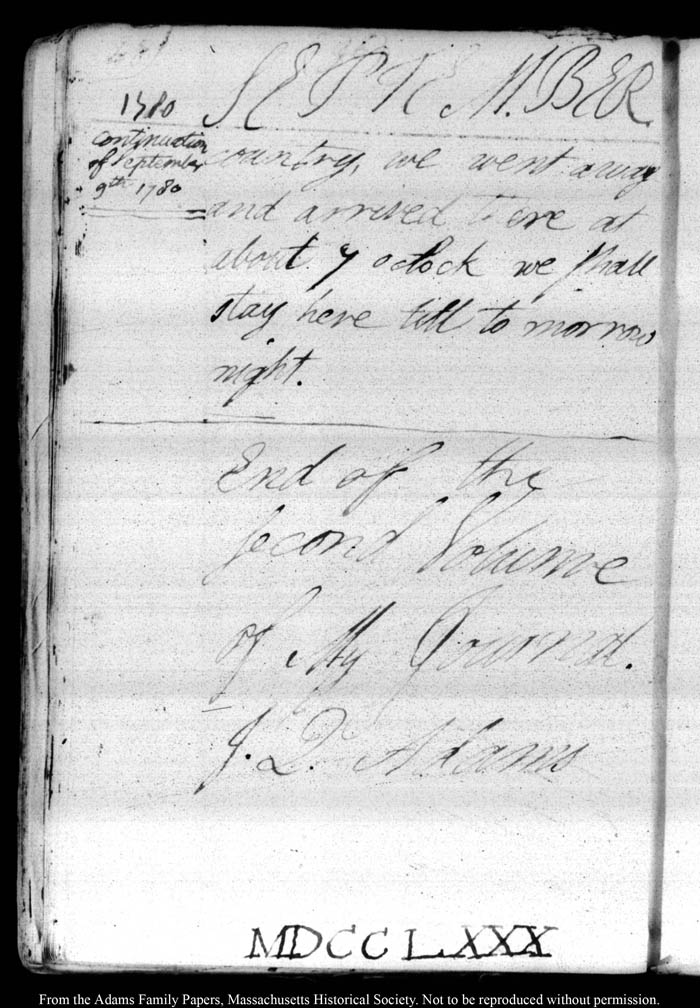 1780
SEPTEMBER
continuation
of September
9th 1780
country, we went away
and arrived there at
about 7 oclock we shall
stay here till to morrow
night.
End of the
second Volume
of My Journal.
J. Q. Adams
MDCCLXXX
From the Adams Family Papers, Massachusetts Historical Society. Not to be reproduced without permission.